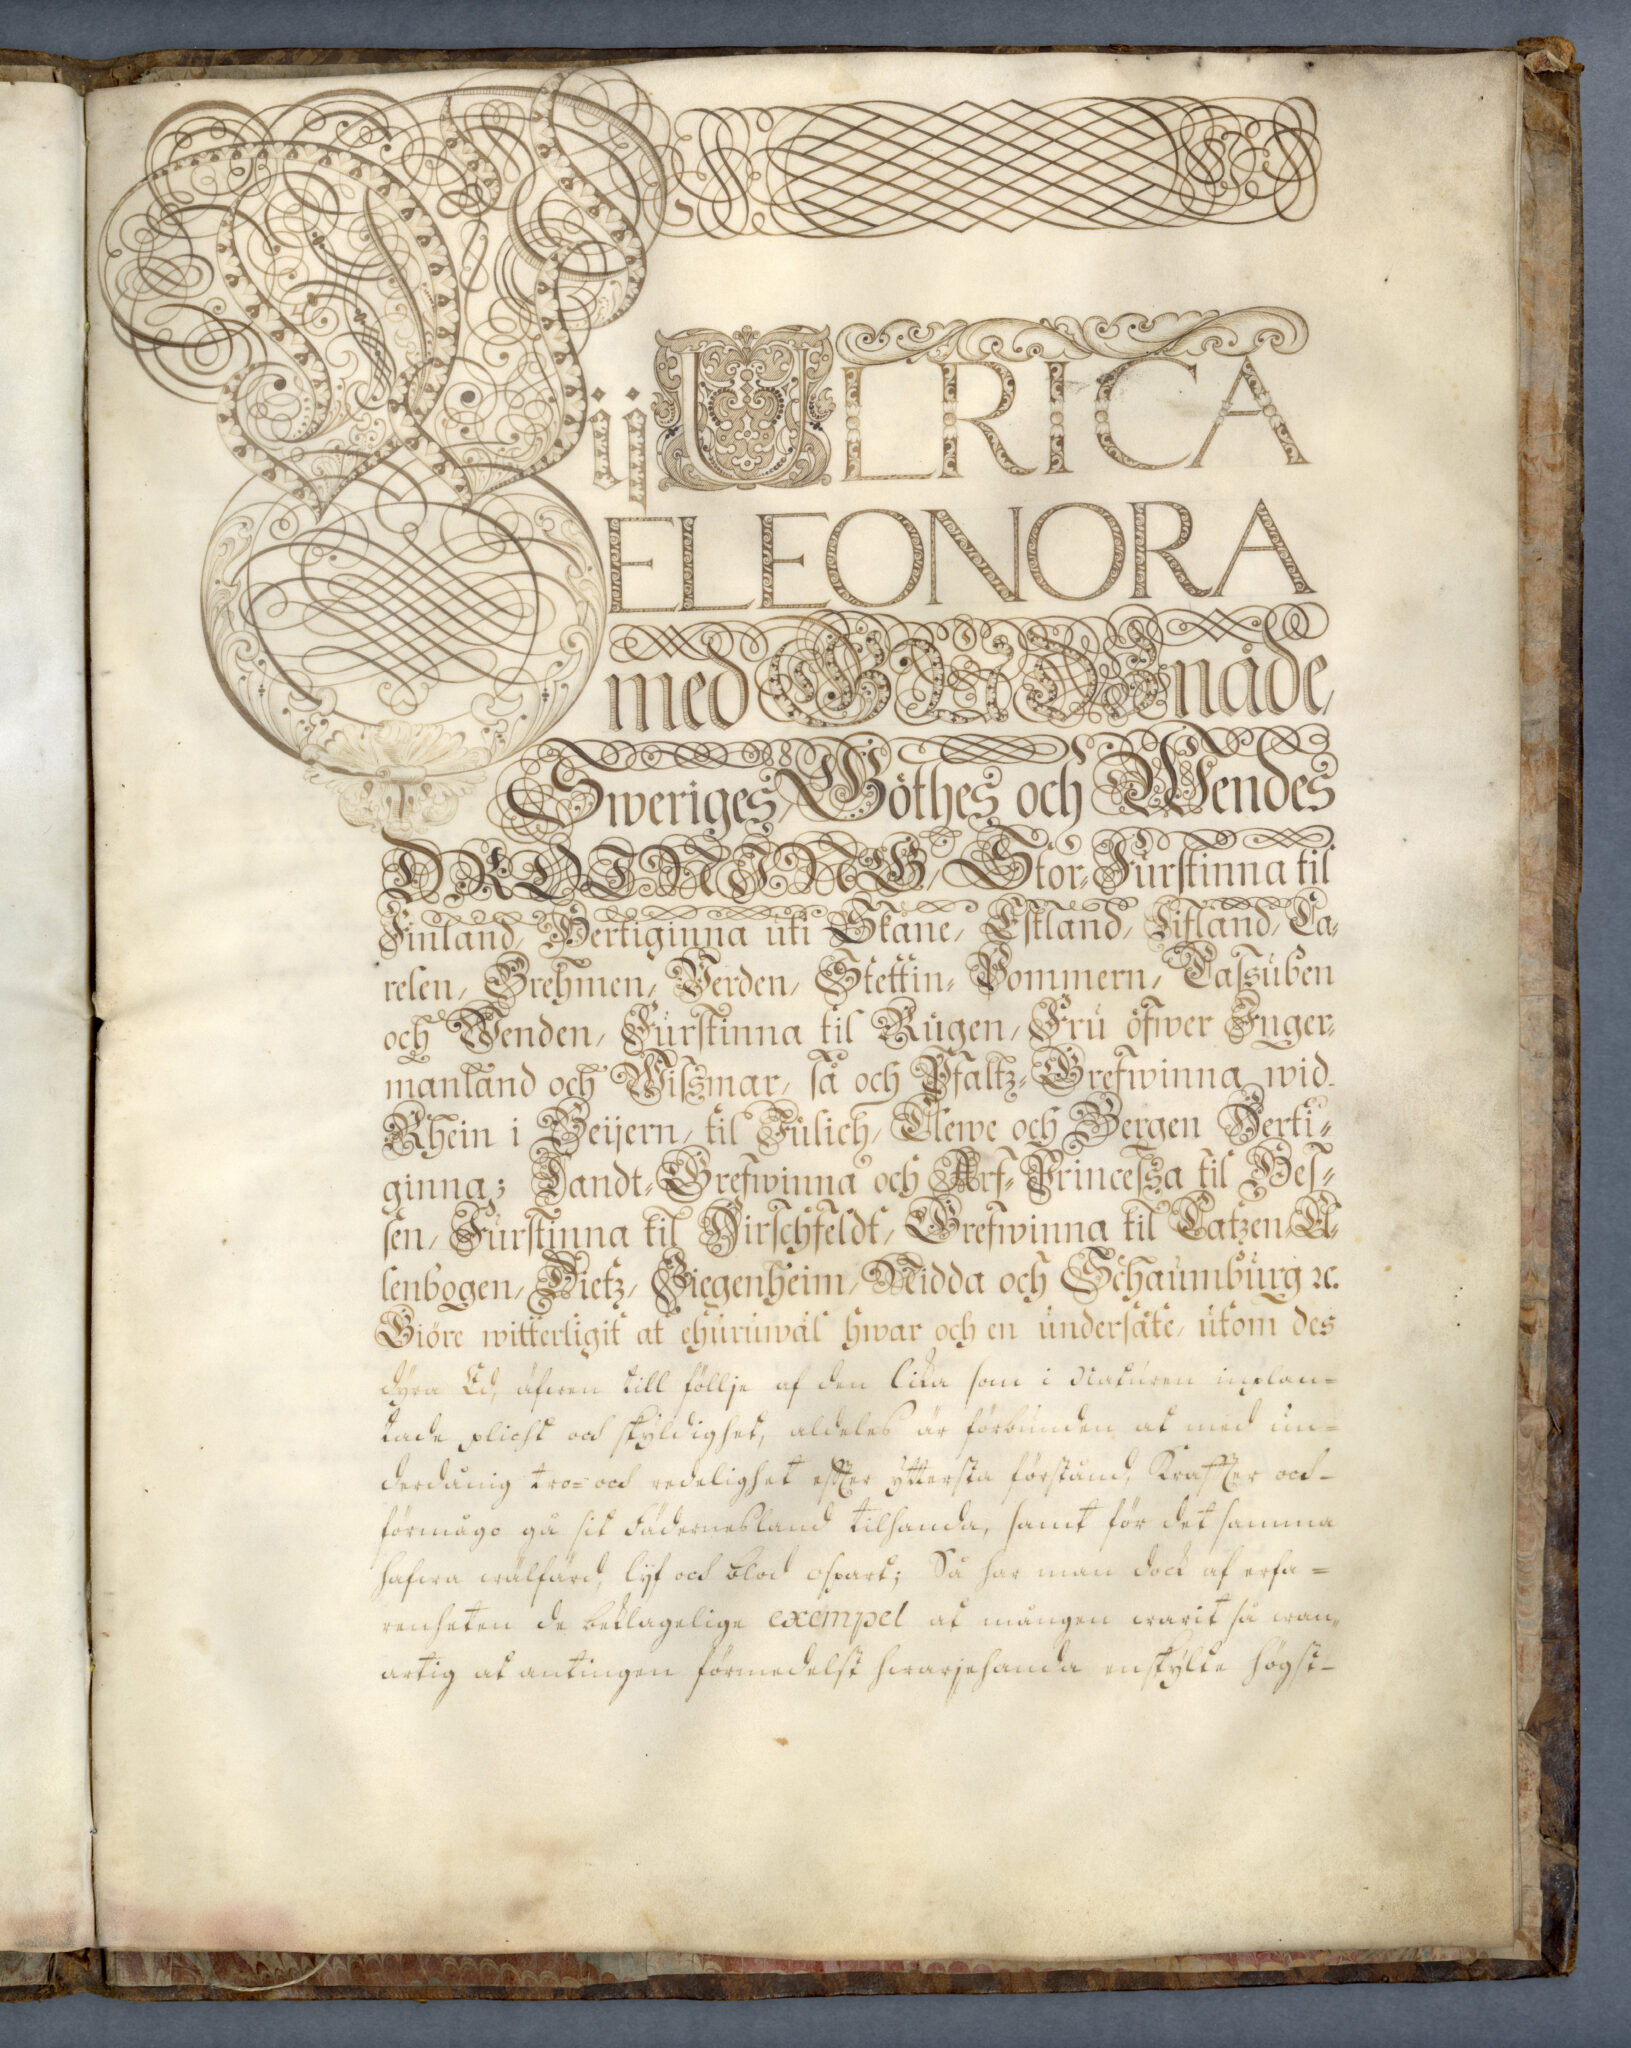 Wij ULRICA
ELEONORA
med GUDZ nåde,
Sweriges, Göthes och Wendes
DROTNING, Stor-Fürstinna til
Finland, Hertiginna uti Skåne, Estland, Lifland, Ca-
relen, Brehmen, Verden, Stettin-Pommern, Cassuben
och Wenden, Fürstinna til Rügen, Fru öfwer Inger-
manland och Wissmar, så och Pfaltz-Grefwinna wid
Rhein i Beijern, til Jülich, Clewe och Bergen Herti-
ginna; Landt-Grefwinna och Arf-Princessa til Hes-
sen, Fürstinna til Hirschfeldt, Grefwinna til Catzen-E-
lenbogen, Dietz, Ziegenheim, Nidda och Schaumburg ꝛc.
Giöre witterligit at ehuruwäl hwar och en undersåte, utom des
dyra Ed, äfwen till föllje af den lika som i Naturen inplan-
tade plicht och skyldighet, aldeles är förbunden at med un-
derdånig tro- och redelighet efter yttersta förstånd, Krafter och
förmågo gå sit Fädernesland tilhanda, samt för det samma
hafwa wälfärd, lijf och blod ospart; Så har man dock af erfa-
renheten de beklagelige exempel at mången warit så wan-
artig at antingen förmedelst hwarjehanda enskylte högst-